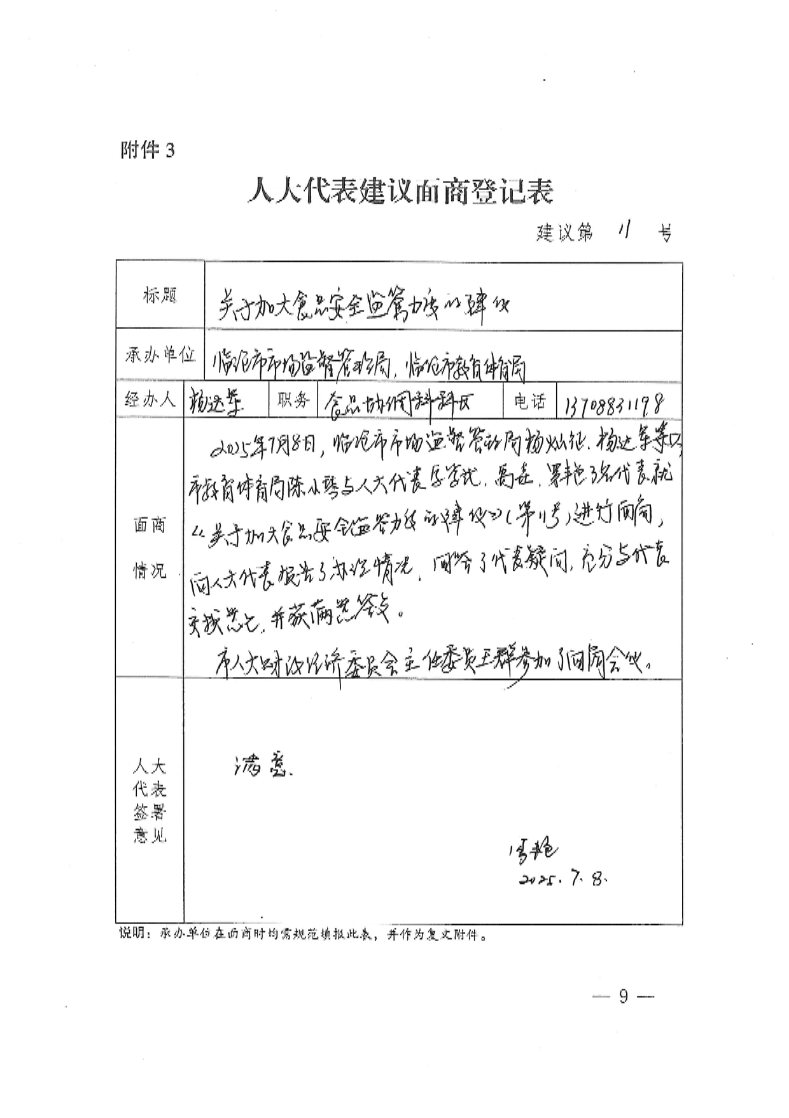 附件 3
人大代表建议面商登记表
建议第 11 号
标题 关于加大食品安全监管力度的建议
承办单位 临沧市市场监督管理局，临沧市教育体育局
经办人 杨达荣 职务 食品协调科科长 电话 13708831198
面商情况
2025年7月8日，临沧市市场监督管理局杨灿征、杨达荣等以
市教育体育局陈小琴与人大代表 3名代表就
《关于加大食品安全监管力度的建议》(第11号)进行面商，
向人大代表报告了办理情况，回答了代表疑问，充分与代表
交换意见，并获满意答复。
市人大财政经济委员会主任委员王群参加了面商会议。
人大
代表
签署
意见
满意.
2025.7.8.
说明：承办单位在面商时均需规范填报此表，并作为复文附件。
— 9 —